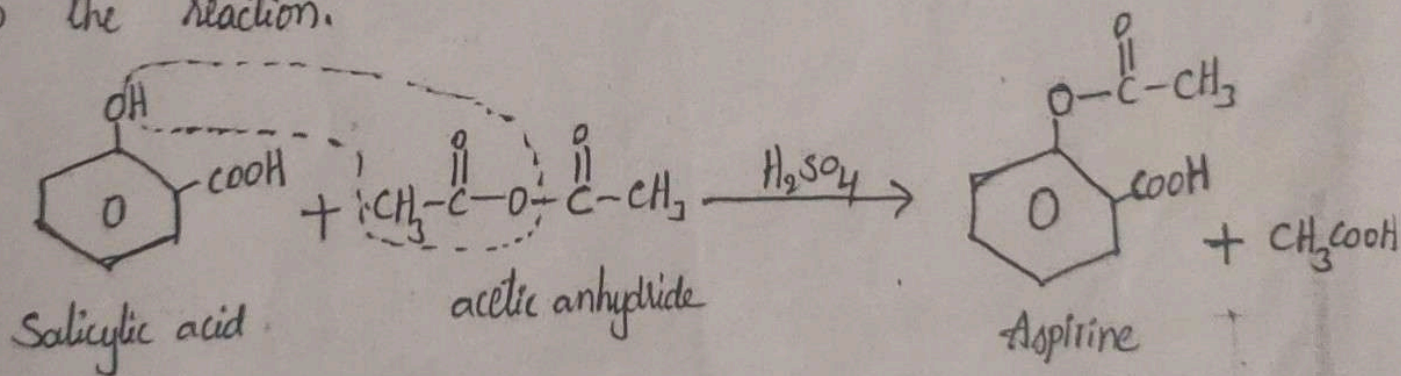 the reaction.
OH
COOH
+
CH3-C-O-C-CH3
O
O
H2SO4
O
O-C-CH3
COOH
+ CH3COOH
Salicylic acid
acetic anhydride
Aspirine